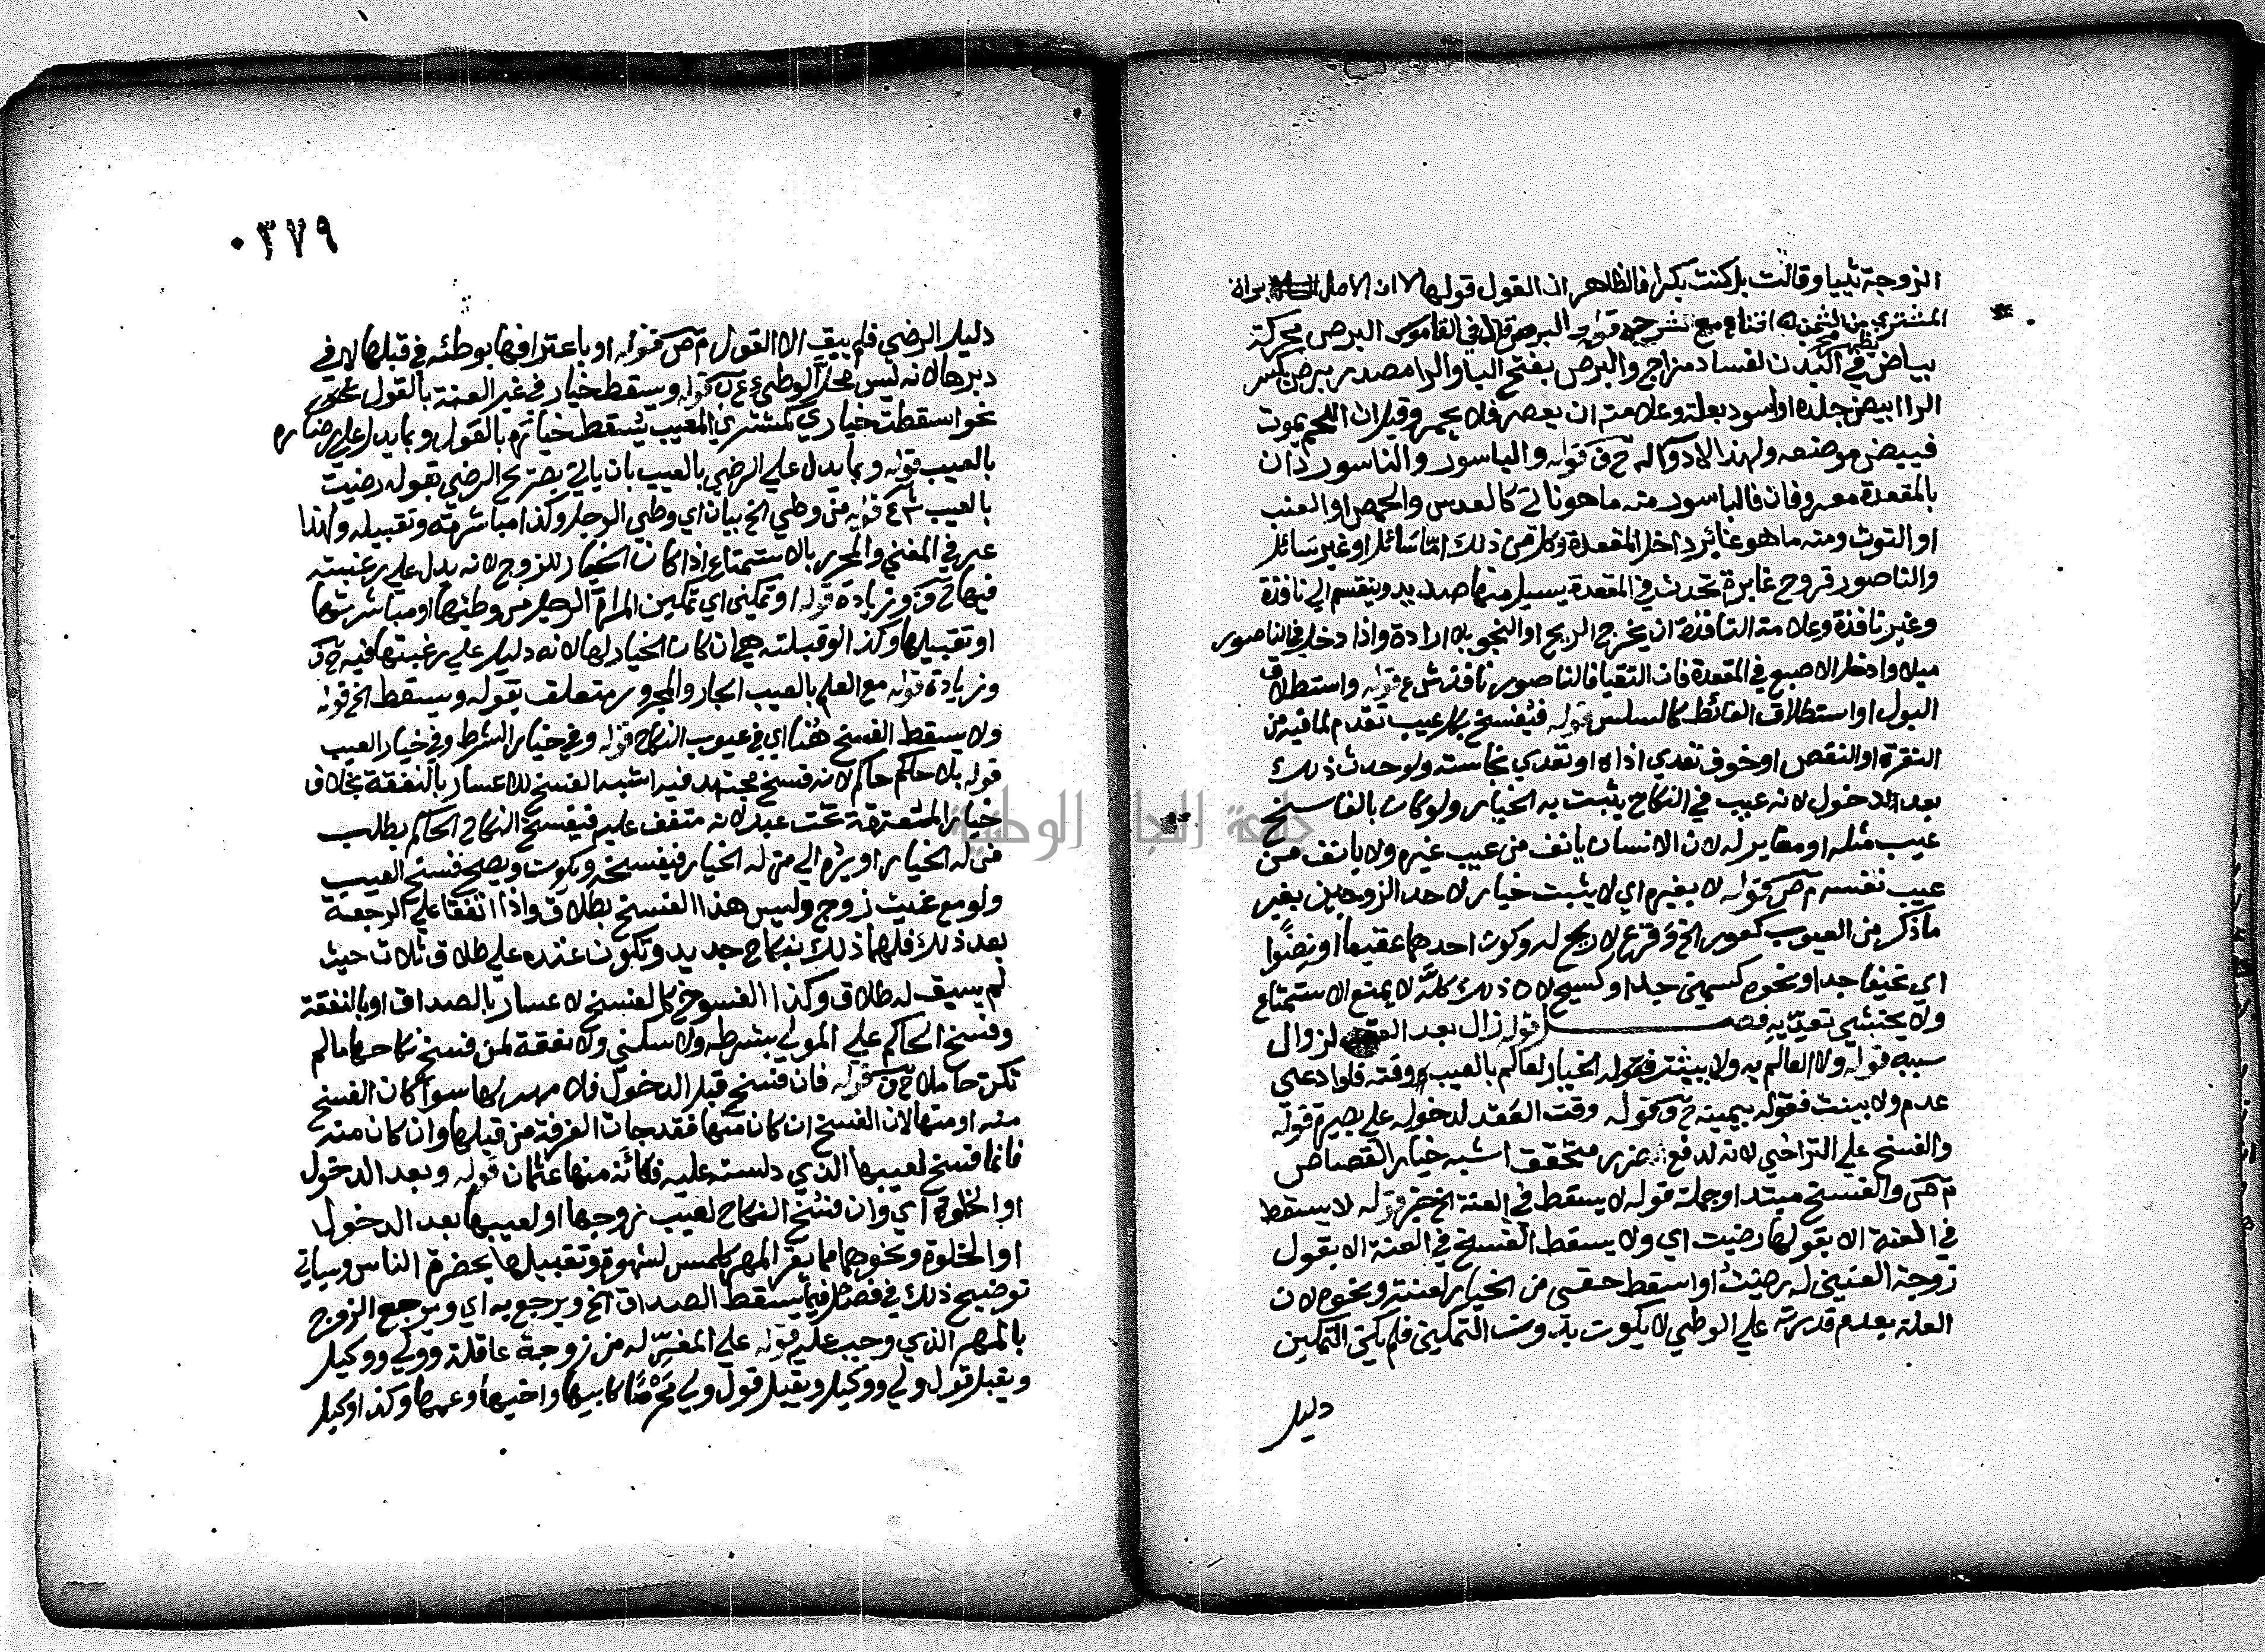 الزوجة ثيبا وقالت بل كنت بكرا فالظاهر ان القول قولها لان الاصل براة
المشتري من الثمن اقناع مع شرحه قوله البرص قال في القاموس البرص محركة
بياض يظهر في البدن لفساد مزاج والبرص بفتح الباو الرا مصدر برص بكسر
الرا ابيض جلده او اسود بعلة وعلامته ان يعصر فلا يحمر وقيل ان اللحم يموت
فيبيض موضعه ولهذا لا دوا له ح ف قوله والباسور والناسور داان
بالمقعدة معروفان فالباسور منه ما هو ناتئ كالعدس والحمص او العنب
او التوث ومنه ما هو غائر داخل المقعدة وكل من ذلك اما سائل او غير سائل
والناصور قروح غايرة تحدث في المقعدة يسيل منها صديد وينقسم الى نافذة
وغير نافذة وعلامة النافذة ان يخرج الريح او النجو بلا ارادة واذا دخل في الناصور
ميلا وادخل الاصبع في المقعدة فان التقيا فالناصور نافذ ش ع قوله واستطلاق
البول او استطلاق الغائط كالسلس قوله فيفسخ بكل عيب تقدم لما فيه من
النقرة او النقص او خوف تعدي اذاه او تعدي نجاسته ولو حدث ذلك
بعد الدخول لانه عيب في النكاح يثبت به الخيار ولو كان بالفاسخ
عيب مثله او مغاير له لان الانسان يانف من عيب غيره ولا يانف من
عيب نفسه م ص قوله لا بغيره اي لا يثبت خيار لاحد الزوجين بغير
ما ذكر من العيوب كعور الخ وقرع لا ريح له وكون احدهما عقيما او نضوا
اي نحيفا جدا ونحوه كسمين جدا وكسيح لان ذلك كله لا يمنع الاستمتاع
ولا يخشى تعديه فصل قوله زال بعد العقد لزوال
سببه قوله ولا العالم به ولا يثبت قوله الخيار لعالم بالعيب وقته فلو ادعى
عدم ولا بينت فقوله بيمينه ح ف قوله وقت العقد لدخوله على بصيرة قوله
والفسخ على التراخي لانه لدفع ضرر متحقق اشبه خيار القصاص
م ص والفسخ مبتدا وجملة قوله لا يسقط في العنة الخ خبر قوله لا يسقط
في العنة الا بقولها رضيت اي ولا يسقط الفسخ في العنة الا بقول
زوجة العنين له رضيت او اسقطت حقي من الخيار لعنته ونحوه لان
العلة بعدم قدرته على الوطي لا يكون بدون التمكين فلم يكن التمكين
دليل
٠٣٧٩
دليل الرضي فلم يبق الا القول م ص قوله او باعترافها بوطئه في قبلها لا في
دبرها لانه ليس محل الوطي ع ن قوله ويسقط خيار في غير العنة بالقول
نحو اسقطت خياري كمشتري المعيب يسقط خياره بالقول وبما يدل على رضاه
بالعيب قوله وبما يدل على الرضي بالعيب بان ياتي بصريح الرضي بقوله رضيت
بالعيب ش ع قوله من وطي الخ بيان اي وطي الرجل وكذا مباشرته وتقبيله ولهذا
عبر في المغني والمحرر بالاستمتاع اذا كان الخيار للزوج لانه يدل على رغبته
فيها ح ف وزيادة قوله او تمكين اي تمكين المراة الرجل من وطئها او مباشرتها
او تقبيلها وكذا لو قبلته هي ان كان الخيار لها لانه دليل على رغبتها فيه ح ف
وزيادة قوله مع العلم بالعيب الجار والمجرور متعلق بقوله ويسقط الخ قوله
ولا يسقط الفسخ هنا اي في عيوب النكاح قوله وفي خيار الشرط وفي خيار العيب
قوله بلا حكم حاكم لانه فسخ مجتهد فيه اشبه الفسخ للاعسار بالنفقة بخلاف
خيار المعتقة تحت عبد لانه متفق عليه فيفسخ النكاح الحاكم بطلب
من له الخيار او يرده الى من له الخيار فيفسخه ويكون ويصح فسخ العيب
ولو مع غيبت زوج وليس هذا الفسخ بطلاق واذا اتفقا على الرجعة
بعد ذلك فلهما ذلك بنكاح جديد وتكون عنده على طلاق ثلاث حيث
لم يسبق له طلاق وكذا الفسوخ كالفسخ لاعسار بالصداق او بالنفقة
وفسخ الحاكم على المولي بشرطه ولا سكنى ولا نفقة لمن فسخ نكاحها ما لم
تكن حاملا ح ف قوله فان فسخ قبل الدخول فلا مهر لها سوا كان الفسخ
منه او منها لان الفسخ ان كان منها فقد جات الفرقة من قبلها وان كان منه
فانما فسخ لعيبها الذي دلسته عليه فكانه منها عثمان قوله وبعد الدخول
او الخلوة اي وان فسخ النكاح لعيب زوجها او لعيبها بعد الدخول
او الخلوة ونحوهما مما يقرر المهر كلمس لشهوة وتقبيلها بحضرة الناس وسياتي
توضيح ذلك في فصل فيما يسقط الصداق الخ ويرجع به اي ويرجع الزوج
بالمهر الذي وجب عليه قوله على المغر له من زوجة عاقلة وولي ووكيل
ويقبل قول ولي ووكيل ويقبل قول ولي محرما كابيها واخيها وعمها وكذا وكيل